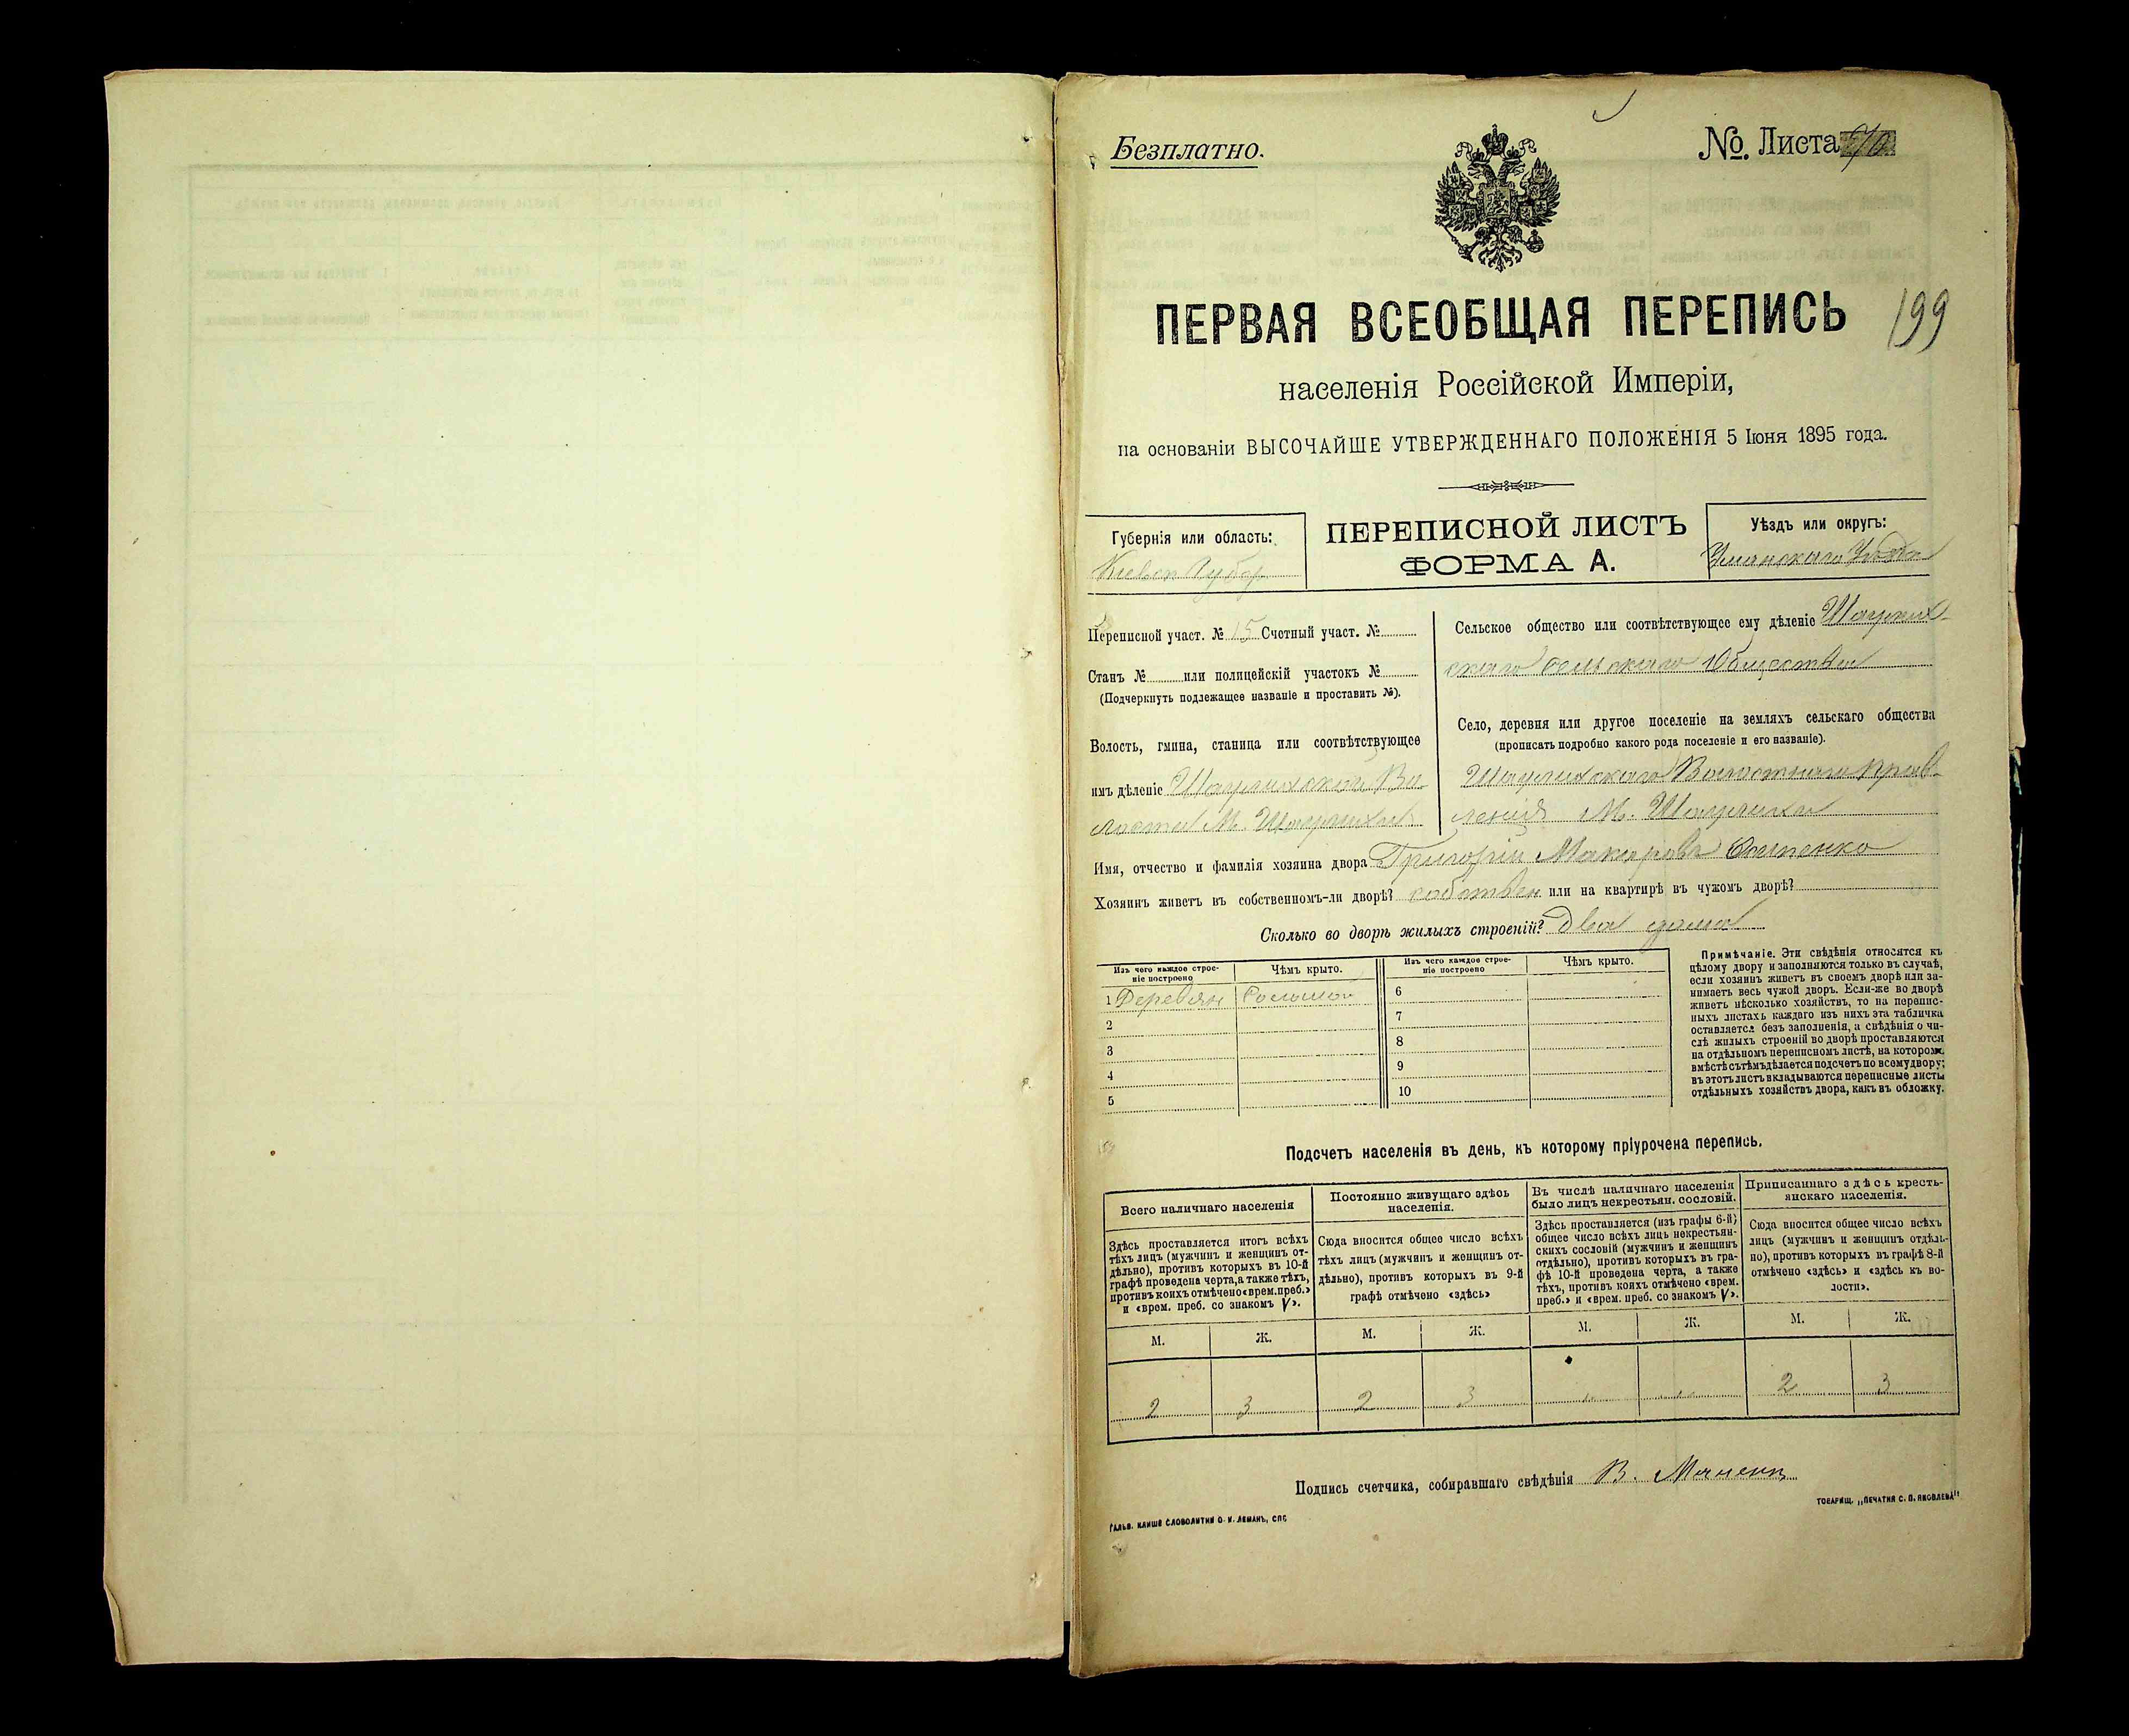 Безплатно.
№. Листа
199
ПЕРВАЯ ВСЕОБЩАЯ ПЕРЕПИСЬ
населенія Россійской Имперіи,
на основаніи ВЫСОЧАЙШЕ УТВЕРЖДЕННАГО ПОЛОЖЕНІЯ 5 Іюня 1895 года.
Губернія или область:
Киевск Губер
ПЕРЕПИСНОЙ ЛИСТЪ
ФОРМА А.
Уѣздъ или округъ:
Уманскаго Уѣзда
Переписной участ. № 15 Счетный участ. №
Станъ № или полицейскій участокъ №
(Подчеркнуть подлежащее названіе и проставить №).
Волость, гмина, станица или соотвѣтствующее
имъ дѣленіе Шаулихской Во
лости М. Шаулиха
Сельское общество или соотвѣтствующее ему дѣленіе Шаулих-
скаго сельскаго Общества
Село, деревня или другое поселеніе на земляхъ сельскаго общества
(прописать подробно какого рода поселеніе и его названіе).
Шаулихскаго Волостнаго прав-
ленія М. Шаулиха
Имя, отчество и фамилія хозяина двора Григорій Макаровъ
Хозяинъ живетъ въ собственномъ-ли дворѣ? собствен или на квартирѣ въ чужомъ дворѣ?
Сколько во дворѣ жилыхъ строеній? два дома
Изъ чего каждое строе-
ніе построено
Чѣмъ крыто.
Изъ чего каждое строе-
ніе построено
Чѣмъ крыто.
1 Деревян Соломой
2
3
4
5
6
7
8
9
10
Примѣчаніе. Эти свѣдѣнія относятся къ
цѣлому двору и заполняются только въ случаѣ,
если хозяинъ живетъ въ своемъ дворѣ или за-
нимаетъ весь чужой дворъ. Если-же во дворѣ
живетъ нѣсколько хозяйствъ, то на перепис-
ныхъ листахъ каждаго изъ нихъ эта табличка
оставляется безъ заполненія, а свѣдѣнія о чи-
слѣ жилыхъ строеній во дворѣ проставляются
на отдѣльномъ переписномъ листѣ, на которомъ
вмѣстѣ съ тѣмъ дѣлается подсчетъ по всему двору;
въ этотъ листъ вкладываются переписные листы
отдѣльныхъ хозяйствъ двора, какъ въ обложку.
Подсчетъ населенія въ день, къ которому пріурочена перепись.
Всего наличнаго населенія
Здѣсь проставляется итогъ всѣхъ
тѣхъ лицъ (мужчинъ и женщинъ от-
дѣльно), противъ которыхъ въ 10-й
графѣ проведена черта, а также тѣхъ,
противъ коихъ отмѣчено «врем. преб.»
и «врем. преб. со знакомъ V».
Постоянно живущаго здѣсь
населенія.
Сюда вносится общее число всѣхъ
тѣхъ лицъ (мужчинъ и женщинъ от-
дѣльно), противъ которыхъ въ 9-й
графѣ отмѣчено «здѣсь»
Въ числѣ наличнаго населенія
было лицъ некрестьян. сословій.
Здѣсь проставляется (изъ графы 6-й)
общее число всѣхъ лицъ некрестьян-
скихъ сословій (мужчинъ и женщинъ
отдѣльно), противъ которыхъ въ гра-
фѣ 10-й проведена черта, а также
тѣхъ, противъ коихъ отмѣчено «врем.
преб.» и «врем. преб. со знакомъ V».
Приписаннаго здѣсь кресть-
янскаго населенія.
Сюда вносится общее число всѣхъ
лицъ (мужчинъ и женщинъ отдѣль-
но), противъ которыхъ въ графѣ 8-й
отмѣчено «здѣсь» и «здѣсь къ во-
лости».
М. Ж. М. Ж. М. Ж. М. Ж.
2 3 2 3 „ „ 2 3
Подпись счетчика, собиравшаго свѣдѣнія В.
ГАЛЬВ. КЛИШЕ СЛОВОЛИТНИ О. И. ЛЕМАНЪ, СПБ
ТОВАРИЩ. „ПЕЧАТНЯ С. П. ЯКОВЛЕВА"